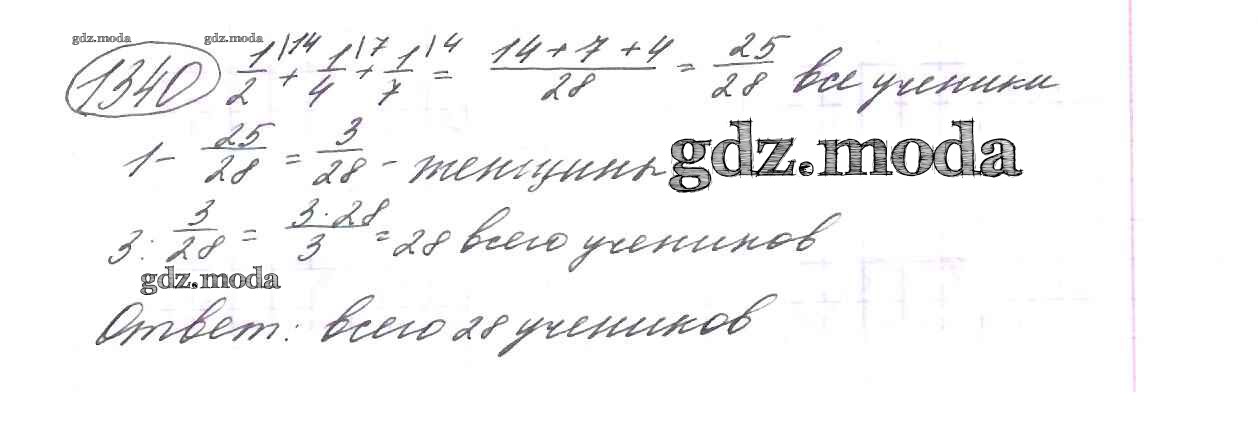 gdz.moda gdz.moda
1340 1/2|14 + 1/4|7 + 1/7|4 = (14+7+4)/28 = 25/28 все ученики
1 - 25/28 = 3/28 - женщины gdz.moda
3 : 3/28 = (3·28)/3 = 28 всего учеников
gdz.moda
Ответ: всего 28 учеников